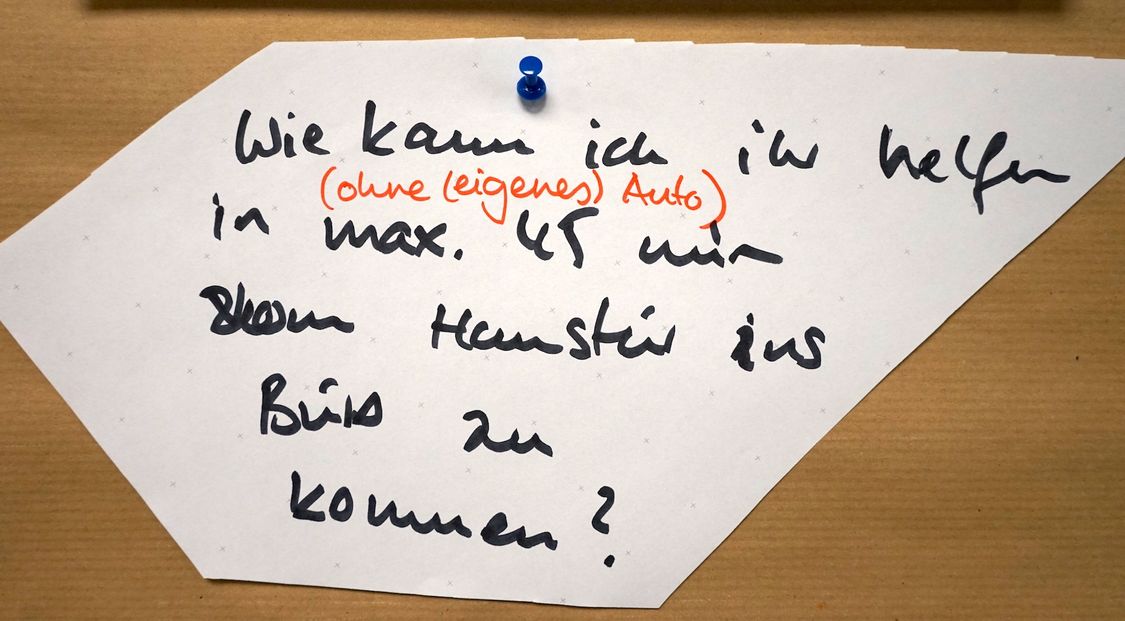 Wie kann ich ihr helfen
(ohne (eigenes) Auto)
in max. 45 min
von Haustür ins
Büro zu
kommen?